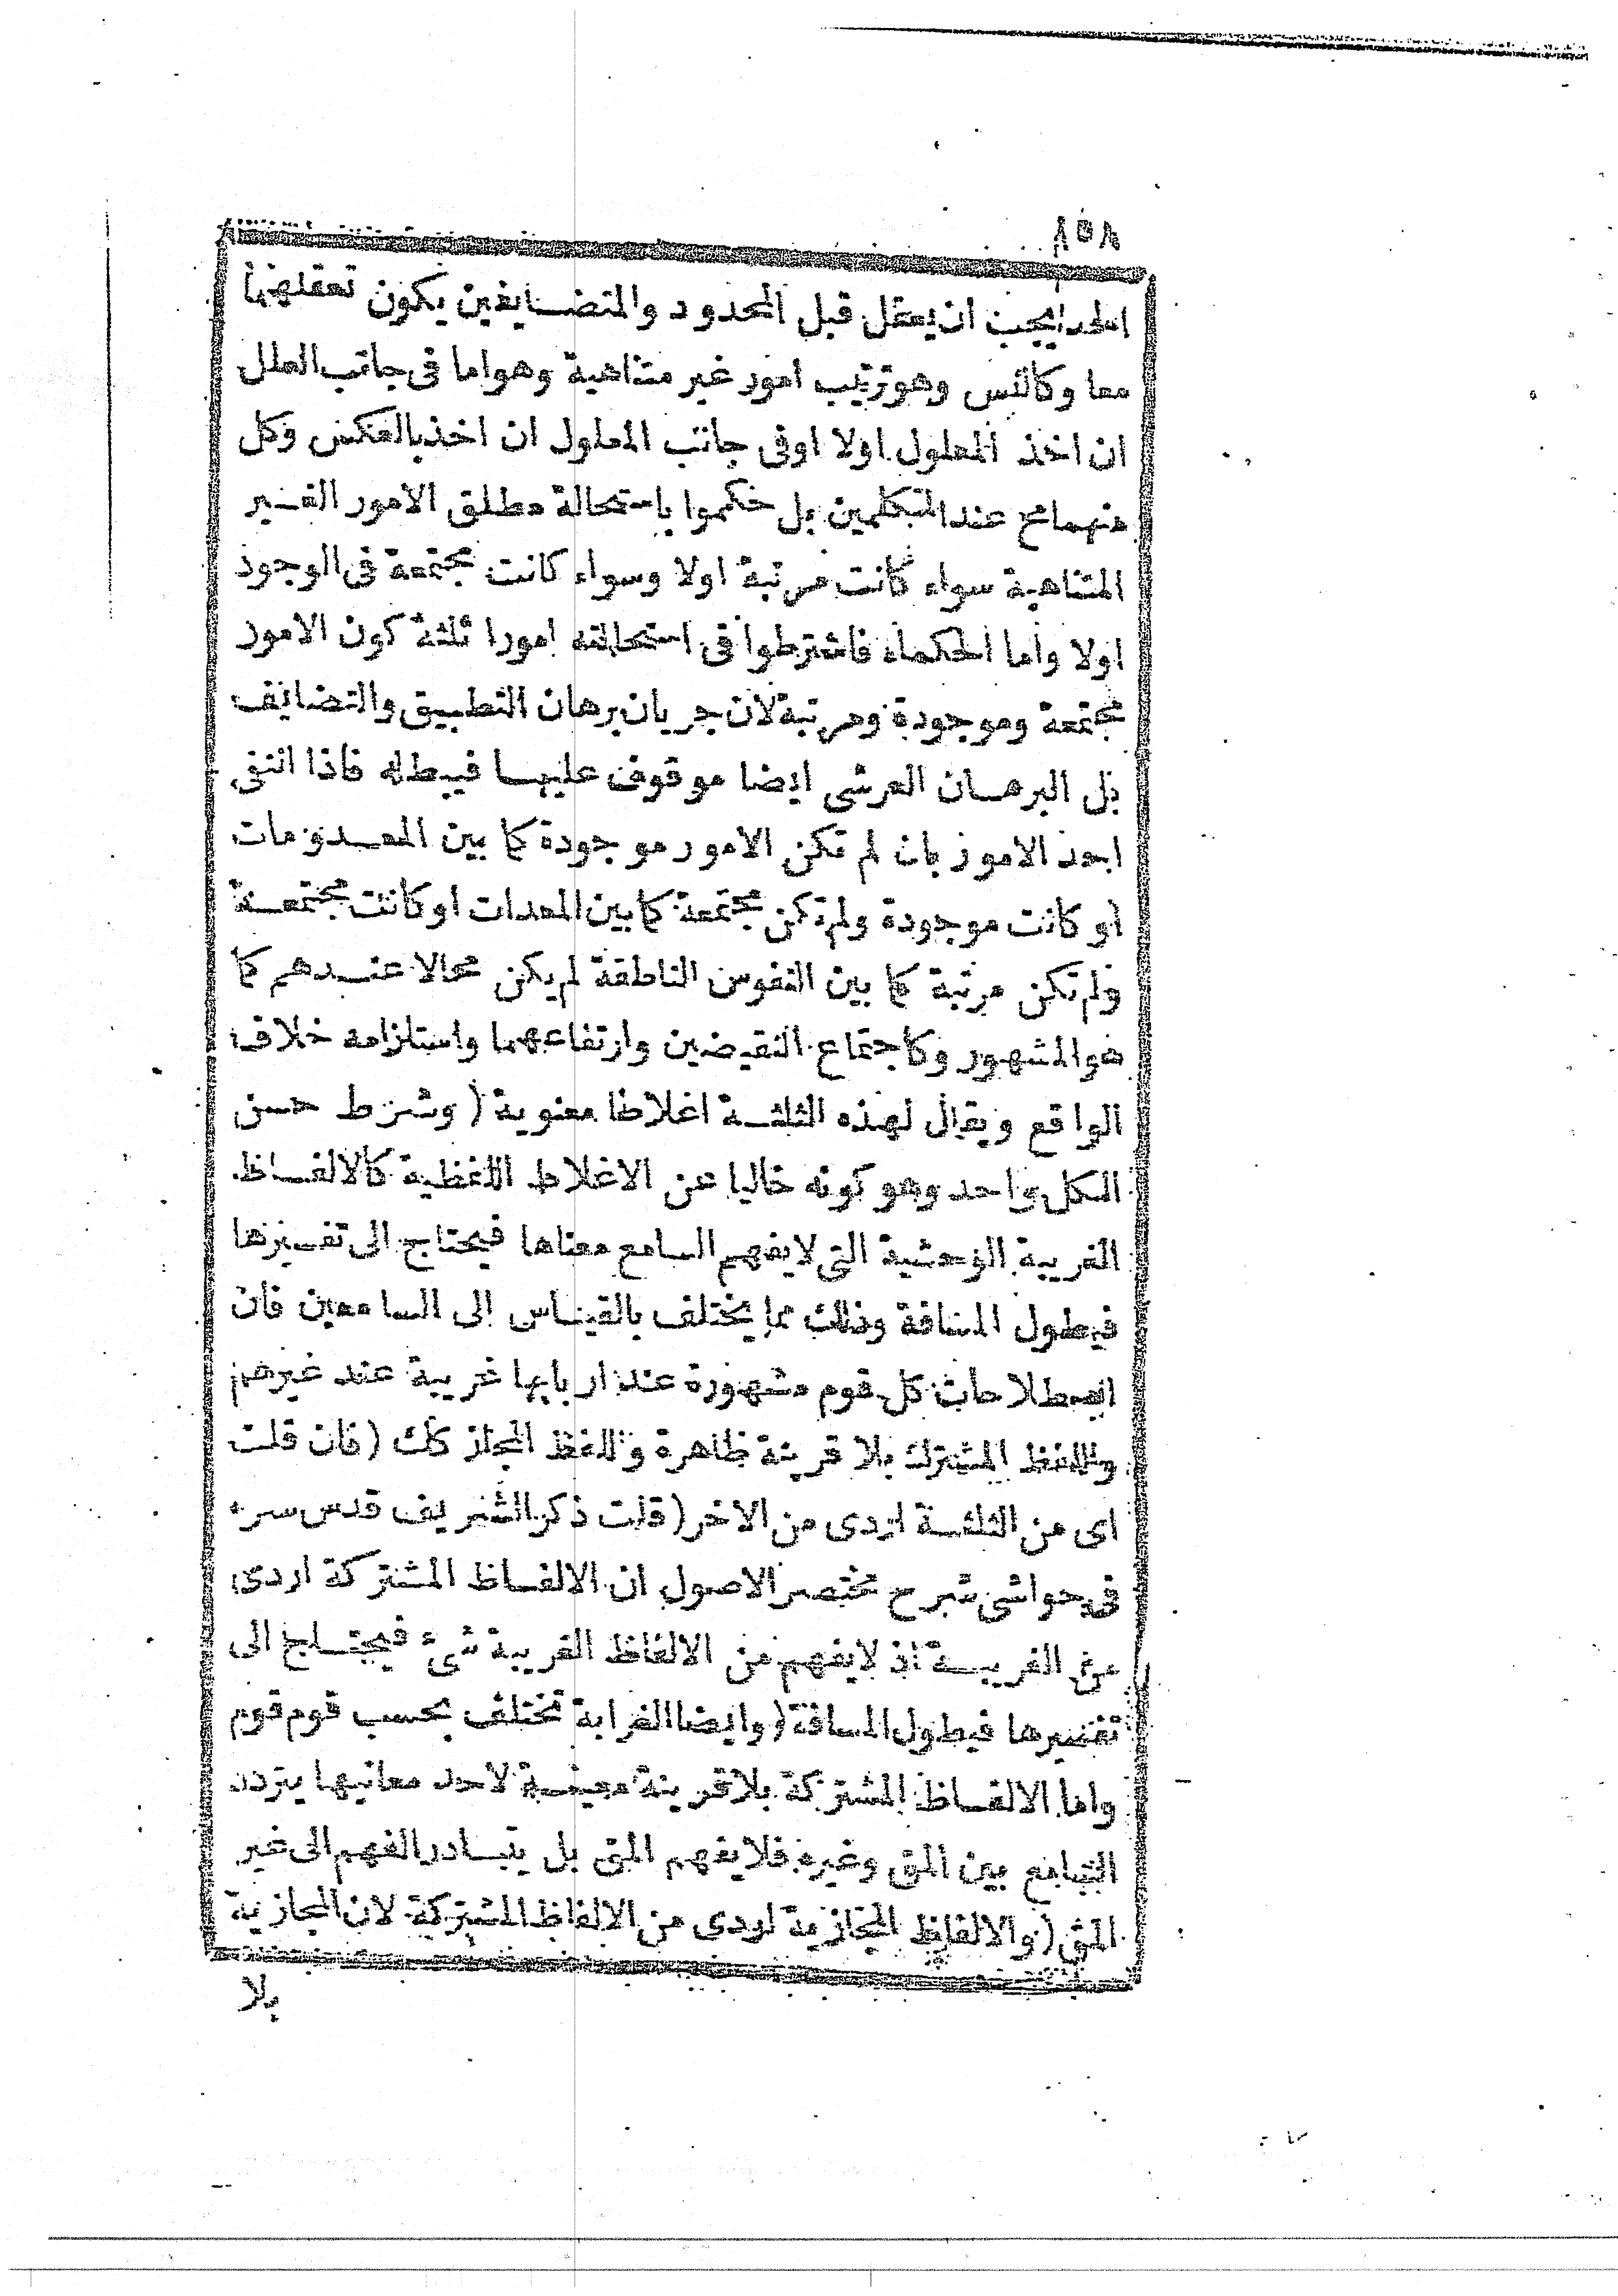 ١٥٨
الحد يجب ان يعقل قبل المحدود والمتضايفين يكون تعقلهما
معا وكالتس وهو ترتيب امور غير متناهية وهو اما فى جانب العلل
ان اخذ المعلول اولا اوفى جانب المعلول ان اخذ بالعكس وكل
منهما مح عند المتكلمين بل حكموا باستحالة مطلق الامور الغير
المتناهية سواء كانت مرتبة اولا وسواء كانت مجتمعة فى الوجود
اولا واما الحكماء فاشترطوا فى استحالته امورا ثلثة كون الامور
مجتمعة وموجودة ومرتبة لان جريان برهان التطبيق والتضايف
بل البرهان العرشى ايضا موقوف عليها فيبطله فاذا انتفى
احد الامور بان لم تكن الامور موجودة كما بين المعدومات
او كانت موجودة ولم تكن مجتمعة كما بين المعدات او كانت مجتمعة
ولم تكن مرتبة كما بين النفوس الناطقة لم يكن محالا عندهم كما
هو المشهور وكاجتماع النقيضين وارتفاعهما واستلزامه خلاف
الواقع ويقال لهذه الثلثة اغلاطا معنوية (وشرط حسن
الكل واحد وهو كونه خاليا عن الاغلاط اللفظية كالالفاظ
الغريبة الوحشية التى لا يفهم السامع معناها فيحتاج الى تفسيرها
فيطول المسافة وذلك مما يختلف بالقياس الى السامعين فان
اصطلاحات كل قوم مشهورة عند اربابها غريبة عند غيرهم
واللفظ المشترك بلا قرينة ظاهرة واللفظ المجاز كك (فان قلت
اى من الثلثة اردى من الاخر (قلت ذكر الشريف قدس سره
فى حواشى شرح مختصر الاصول ان الالفاظ المشتركة اردى
من الغريبة اذ لا يفهم من الالفاظ الغريبة شئ فيحتاج الى
تفسيرها فيطول المسافة (وايضا الغرابة تختلف بحسب قوم قوم
واما الالفاظ المشتركة بلا قرينة معينة لاحد معانيها يتردد
السامع بين المق وغيره فلا يفهم المق بل يتبادر الفهم الى غير
المق (والالفاظ المجازية اردى من الالفاظ المشتركة لان المجازية
بلا